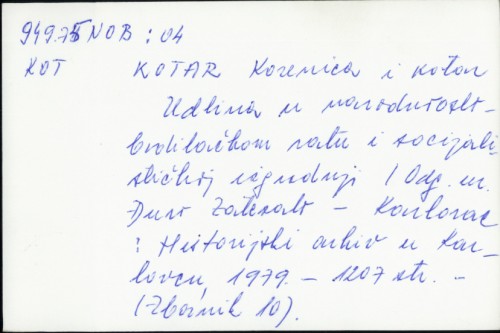 949.75 NOB : 04
KOT KOTAR Korenica i kotar
Udbina u narodnooslo-
bodilačkom ratu i socijali-
stičkoj izgradnji / Odg. ur.
Đuro Zatezalo - Karlovac
: Historijski arhiv u Kar-
lovcu, 1979. - 1207 str. -
(Zbornik 10).